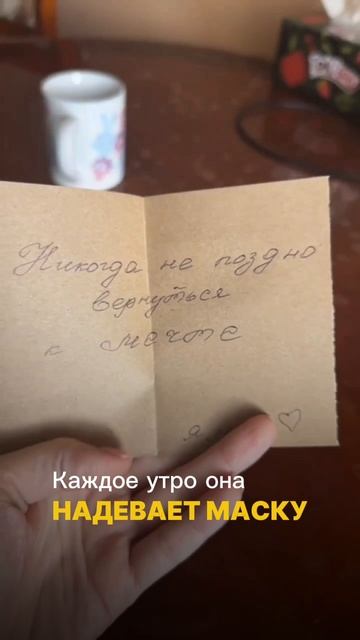 Никогда не поздно
вернуться
к мечте
я
Каждое утро она
НАДЕВАЕТ МАСКУ